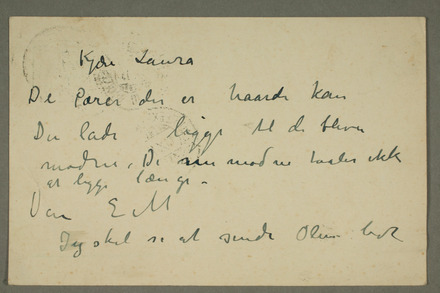 Kjære Laura
De Pærer der er haarde kan
Du lade ligge til de bliver
modne, De modne taaler ikke
at ligge længe.
Din E M
Jeg skal se at sende Olien